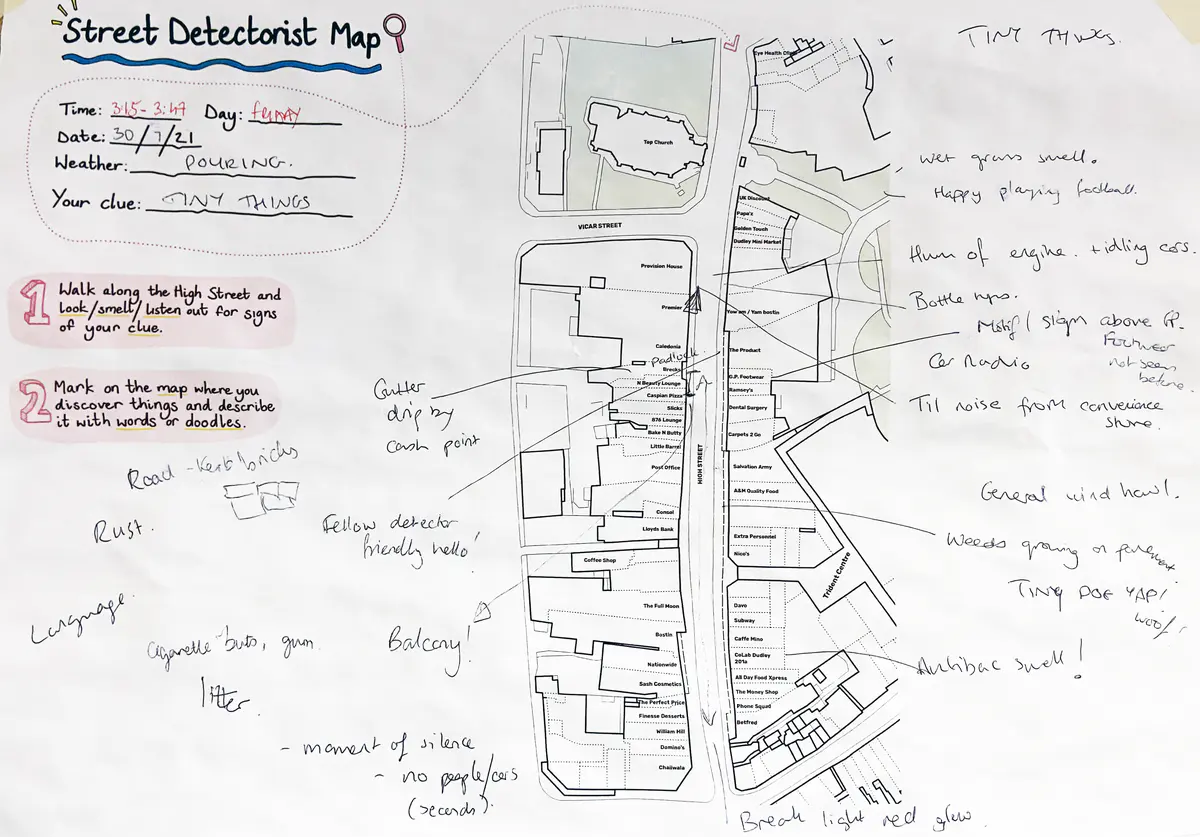 Street Detectorist Map
Time: 3:15 - 3:47 Day: FRIDAY
Date: 30/7/21
Weather: POURING.
Your clue: TINY THINGS
1 Walk along the High Street and
look/smell/listen out for signs
of your clue.
2 Mark on the map where you
discover things and describe
it with words or doodles.
Road - Kerb bricks
Rust.
Language.
Cigarette buts, gum.
litter.
- moment of silence
- no people/cars
(seconds).
Gutter
drip by
cash point
Fellow detector
friendly hello!
Balcony!
Top Church
VICAR STREET
Provision House
Premier
Caledonia
padlock
Brecks
N Beauty Lounge
Caspian Pizza
Slicks
876 Lounge
Bake N Butty
Little Barrel
Post Office
Consol
Lloyds Bank
Coffee Shop
The Full Moon
Bostin
Nationwide
Sash Cosmetics
The Perfect Price
Finesse Desserts
William Hill
Domino's
Chaiiwala
HIGH STREET
Eye Health Clinic
UK Discount
Papa'z
Golden Touch
Dudley Mini Market
Yow am / Yam bostin
The Product
G.P. Footwear
Ramsey's
Dental Surgery
Carpets 2 Go
Salvation Army
A&M Quality Food
Extra Personnel
Nico's
Trident Centre
Davo
Subway
Caffe Mino
CoLab Dudley
201a
All Day Food Xpress
The Money Shop
Phone Squad
Betfred
TINY THINGS.
Wet grass smell.
Happy playing football.
Hum of engine. + idling cars.
Bottle tops.
Motif / sign above GP.
Footwear
not seen
before.
Car Radio
Til noise from convenience
store.
General wind howl.
Weeds growing on pavement
TINY DOG YAP!
woof.
Antibac smell!
Break light red glow.